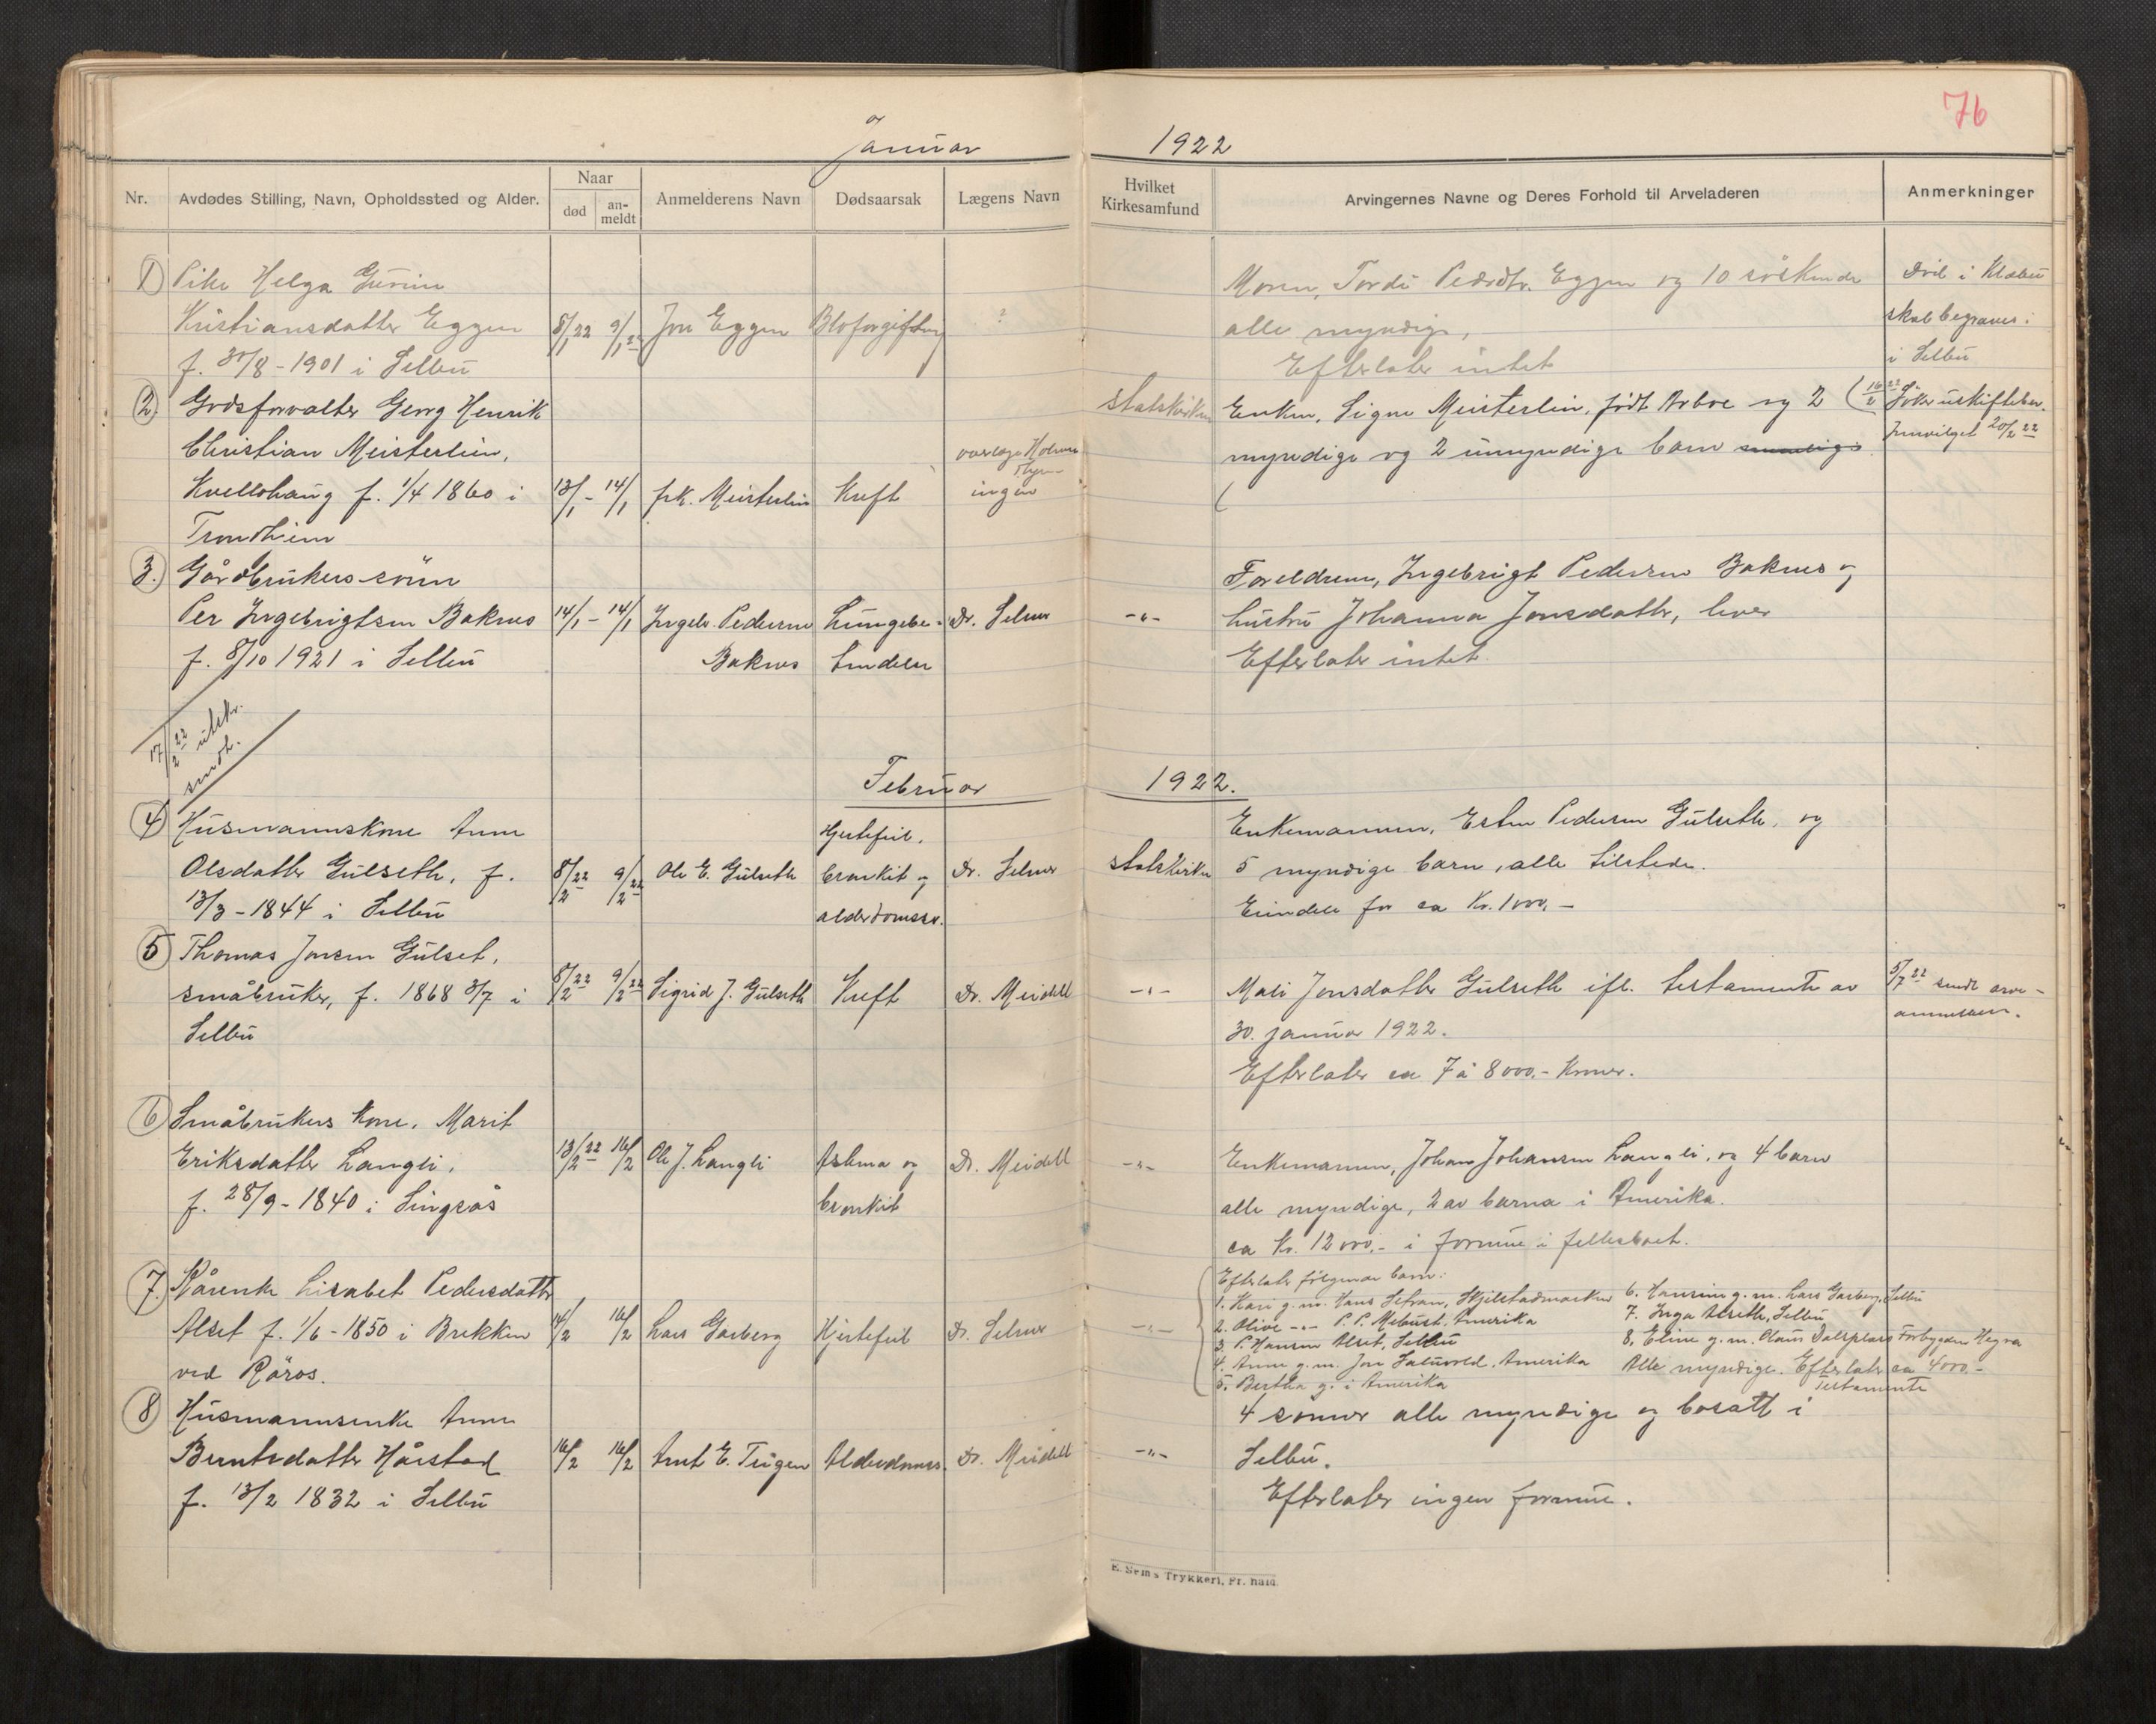 76
Januar 1922
Nr. Avdødes Stilling, Navn, Opholdssted og Alder. Naar død an-meldt Anmelderens Navn Dødsaarsak Lægens Navn Hvilket Kirkesamfund Arvingernes Navne og Deres Forhold til Arveladeren Anmerkninger
1) Pike Helga Gurine Moren, Tordi Pedrdtr. Eggen og 10 søskende Död i Klæbu
Kristiansdatter Eggen 8/1 22 9/1 22 Jon Eggen Bloforgiftning ? alle myndige, skal begraves i
f. 30/8 - 1901 i Selbu Efterlater intet i Selbu
2) Godsforvalter Georg Henrik statskirken Enken, Signe Meisterlin, født Arboe og 2 (16/2 22 Søker uskiftebev.
Christian Meisterlin, myndige og 2 umyndige barn Innvilget 20/2 22
Kvellohaug f. 1/4 1860 i 13/1 - 14/1 frk. Meisterlin Kreft ingen
Trondhiem
3. Gårdbrukers sönn Foreldrene, Ingebrigt Pedersen Baknes og
Per Ingebrigtsen Baknes 14/1 - 14/1 Ingebr. Pedersen Lungebe- Dr. Selmer -"- hustru Johanna Jonsdatter, lever
f. 8/10 1921 i Selbu Baknes tendelse Efterlater intet.
17/2 22 utskr.
sendt.
Februar 1922.
4) Husmannskone Anne Hjertefeil, Enkemannen, Esten Pedersen Gulseth, og
Olsdatter Gulseth, f. 8/2 22 9/2 22 Ole E. Gulseth bronkit og Dr. Selmer statskirken 5 myndige barn, alle tilstede.
13/3 - 1844 i Selbu alderdomssv. Eiendele for ca Kr. 1000,-
5) Thomas Jonsen Gulset,
småbruker, f. 1868 3/7 i 8/2 22 9/2 22 Sigrid J. Gulseth Kreft Dr. Meidell -"- Mali Jonsdatter Gulseth ifl. testamente av 5/7 22 sendt arve-
Selbu 30. januar 1922. anmelder.
Efterlater ca 7 à 8000,- Kroner.
6) Småbrukers Kone, Marit
Eriksdatter Langli, 13/2 22 16/2 Ole J. Langli Astma og Dr. Meidell -"- Enkemannen, Johan Johansen Langli, og 4 barn
f. 28/9 - 1840 i Singsås bronkit alle myndige, 2 av barna i Amerika.
ca Kr. 12000,- i formue i fellesboet.
7. Kårenke Lisabet Pedersdatter Efterlater følgende barn:
Alset f. 1/6 - 1850 i Brekken 14/2 16/2 Lars Garberg Hjertefeil Dr. Selmer -"-
ved Röros.
1. Kari g. m. Hans Sefran, Skjelstadmarken
2. Olive -"- P. P. Mebust, Amerika
3. P. Hansen Alset, Selbu
4. Anne g. m. Jon Amerika
5. Bertha g. i Amerika
6. Hansine g. m. Lars Garberg, Selbu
7. Inga Alseth, Selbu
8. Eline g. m. Olaus Dalsplass Forbygden Hegra
Alle myndige. Efterlater ca 4000,-
Testamente
8) Husmannsenke Anne 4 sønner alle myndige og bosatt i
Berntsdatter Hårstad 16/2 16/2 Arnt E. Teigen Alderdomssv. Dr. Meidell -"- Selbu.
f. 13/2 1832 i Selbu Efterlater ingen formue.
E. Sems Trykkeri, Fr. hald.